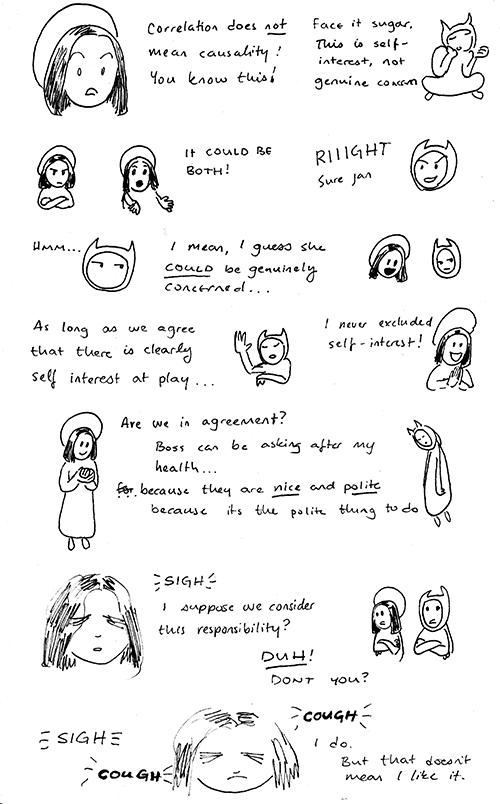 Correlation does not
mean causality!
You know this!
Face it sugar,
This is self-
interest, not
genuine concern
IT COULD BE
BOTH!
RIIIGHT
Sure jan
HMM...
I mean, I guess she
COULD be genuinely
concerned...
As long as we agree
that there is clearly
self interest at play...
I never excluded
self-interest!
Are we in agreement?
Boss can be asking after my
health...
for because they are nice and polite
because its the polite thing to do
SIGH
I suppose we consider
this responsibility?
DUH!
DONT YOU?
SIGH
COUGH
COUGH
I do.
But that doesn't
mean I like it.